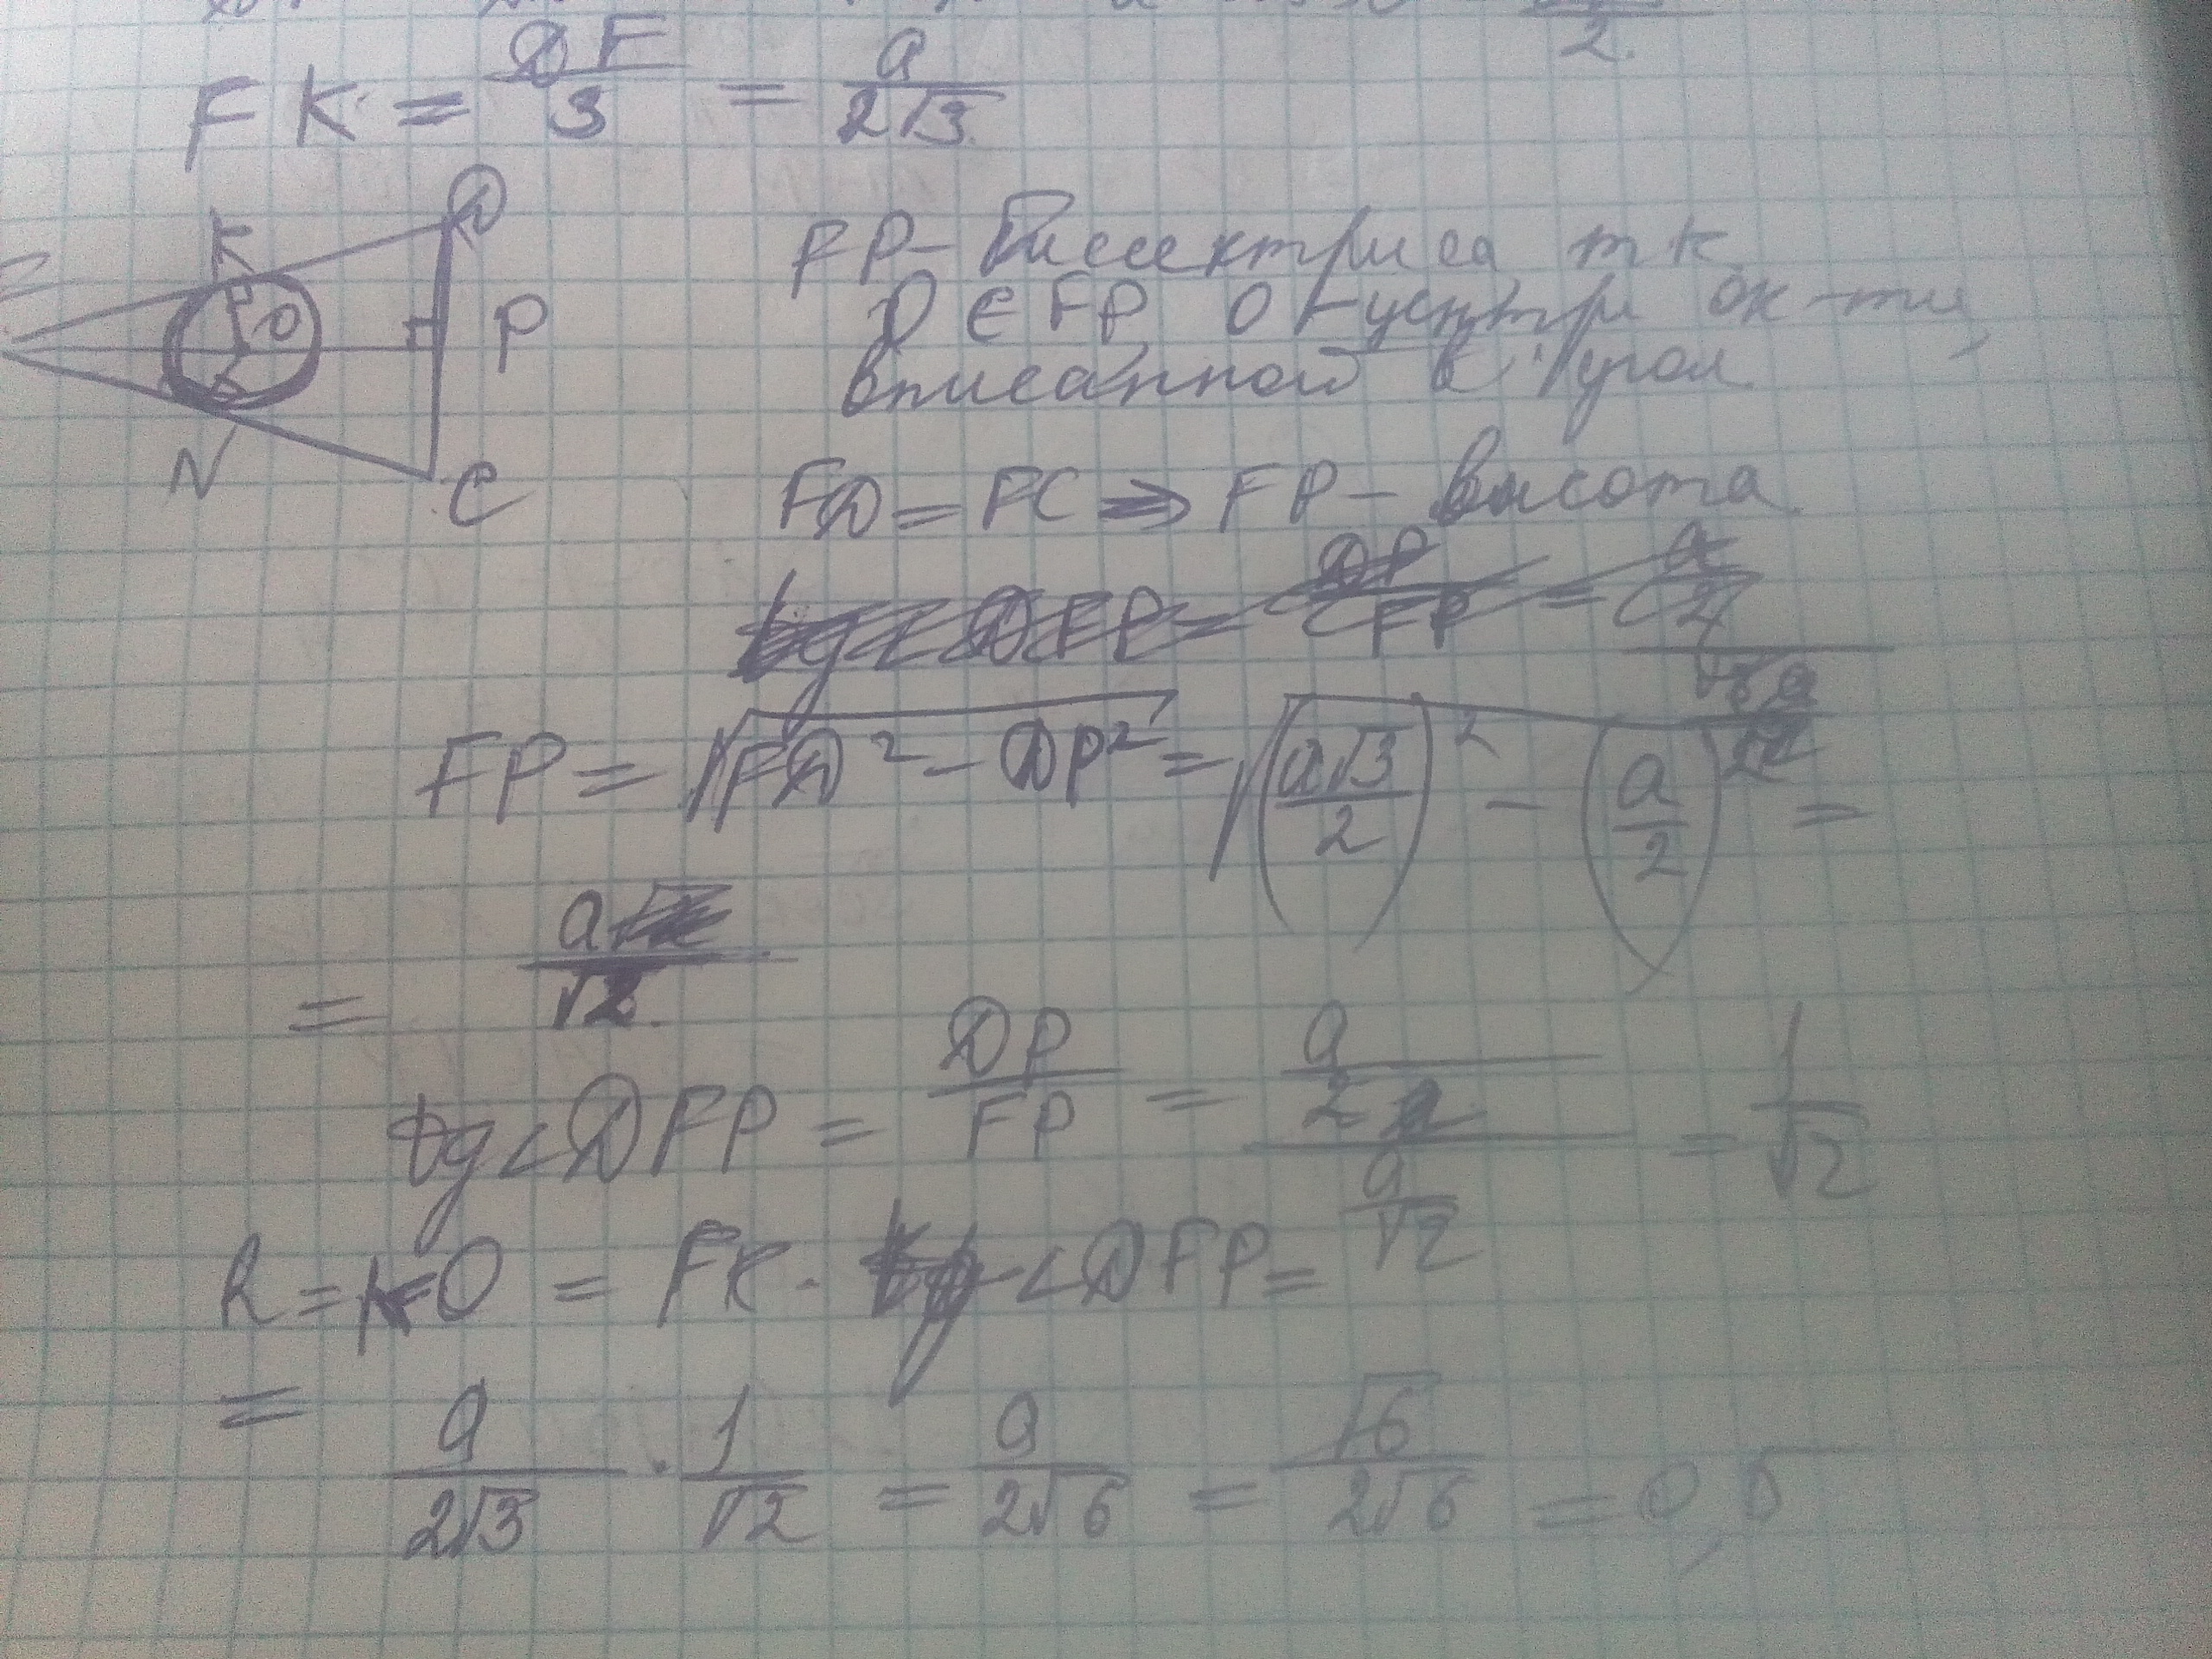 2
FK = DF/3 = a/(2√3)
K
D
O
P
N
C
FP – биссектриса т к
O ∈ FP, O – центр ок-ти,
вписанной в угол
FD = FC ⇒ FP – высота
tg∠DFP = DP/FP = a/2
FP = √(FD² – DP²) = √((a√3/2)² – (a/2)²) =
= a/√2
tg∠DFP = DP/FP = (a/2)/(a/√2) = 1/√2
R = KO = FK · tg∠DFP =
= a/(2√3) · 1/√2 = a/(2√6) = √6/(2√6) = 0,5